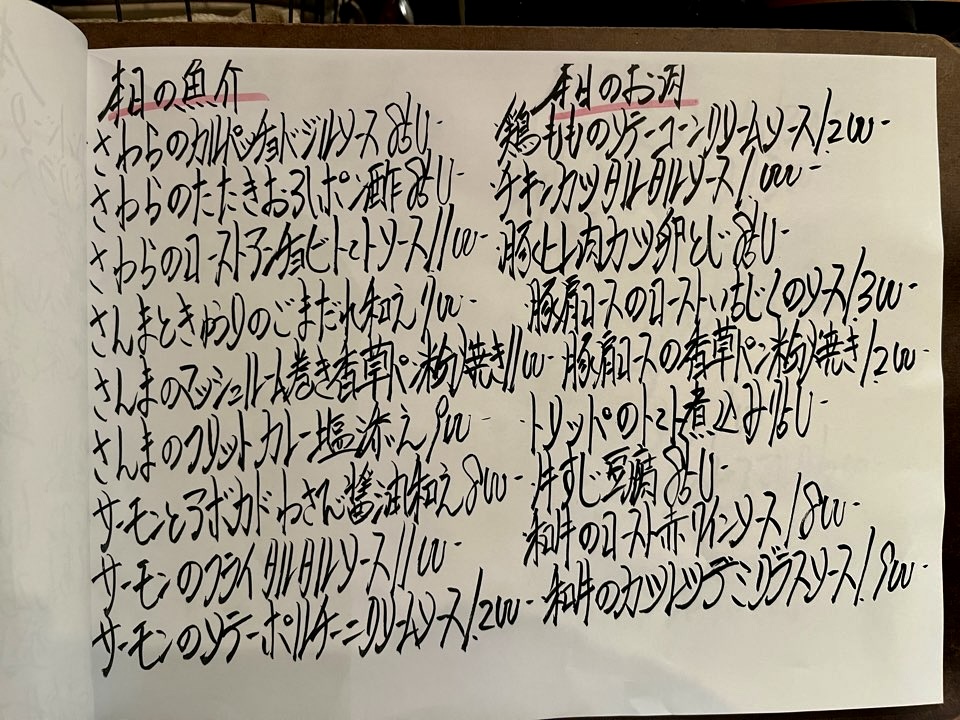 本日の魚介
さわらのカルパッチョバジルソース 850-
さわらのたたきおろしポン酢 850-
さわらのローストアンチョビトマトソース 1100-
さんまときゅうりのごまだれ和え 900-
さんまのマッシュルーム巻き香草パン粉焼き 1100-
さんまのフリットカレー塩添え 900-
サーモンとアボカドわさび醤油和え 800-
サーモンのフライタルタルソース 1100-
サーモンのソテーポルチーニクリームソース 1,200-
本日のお肉
鶏もものソテーコーンクリームソース 1,200-
チキンカツタルタルソース 1,000-
豚ヒレ肉カツ卵とじ 850-
豚肩ロースのローストいちじくのソース 1,300-
豚肩ロースの香草パン粉焼き 1,200-
トリッパのトマト煮込み 950-
牛すじ豆腐 850-
和牛のロースト赤ワインソース 1,800-
和牛のカツレツデミグラスソース 1,900-